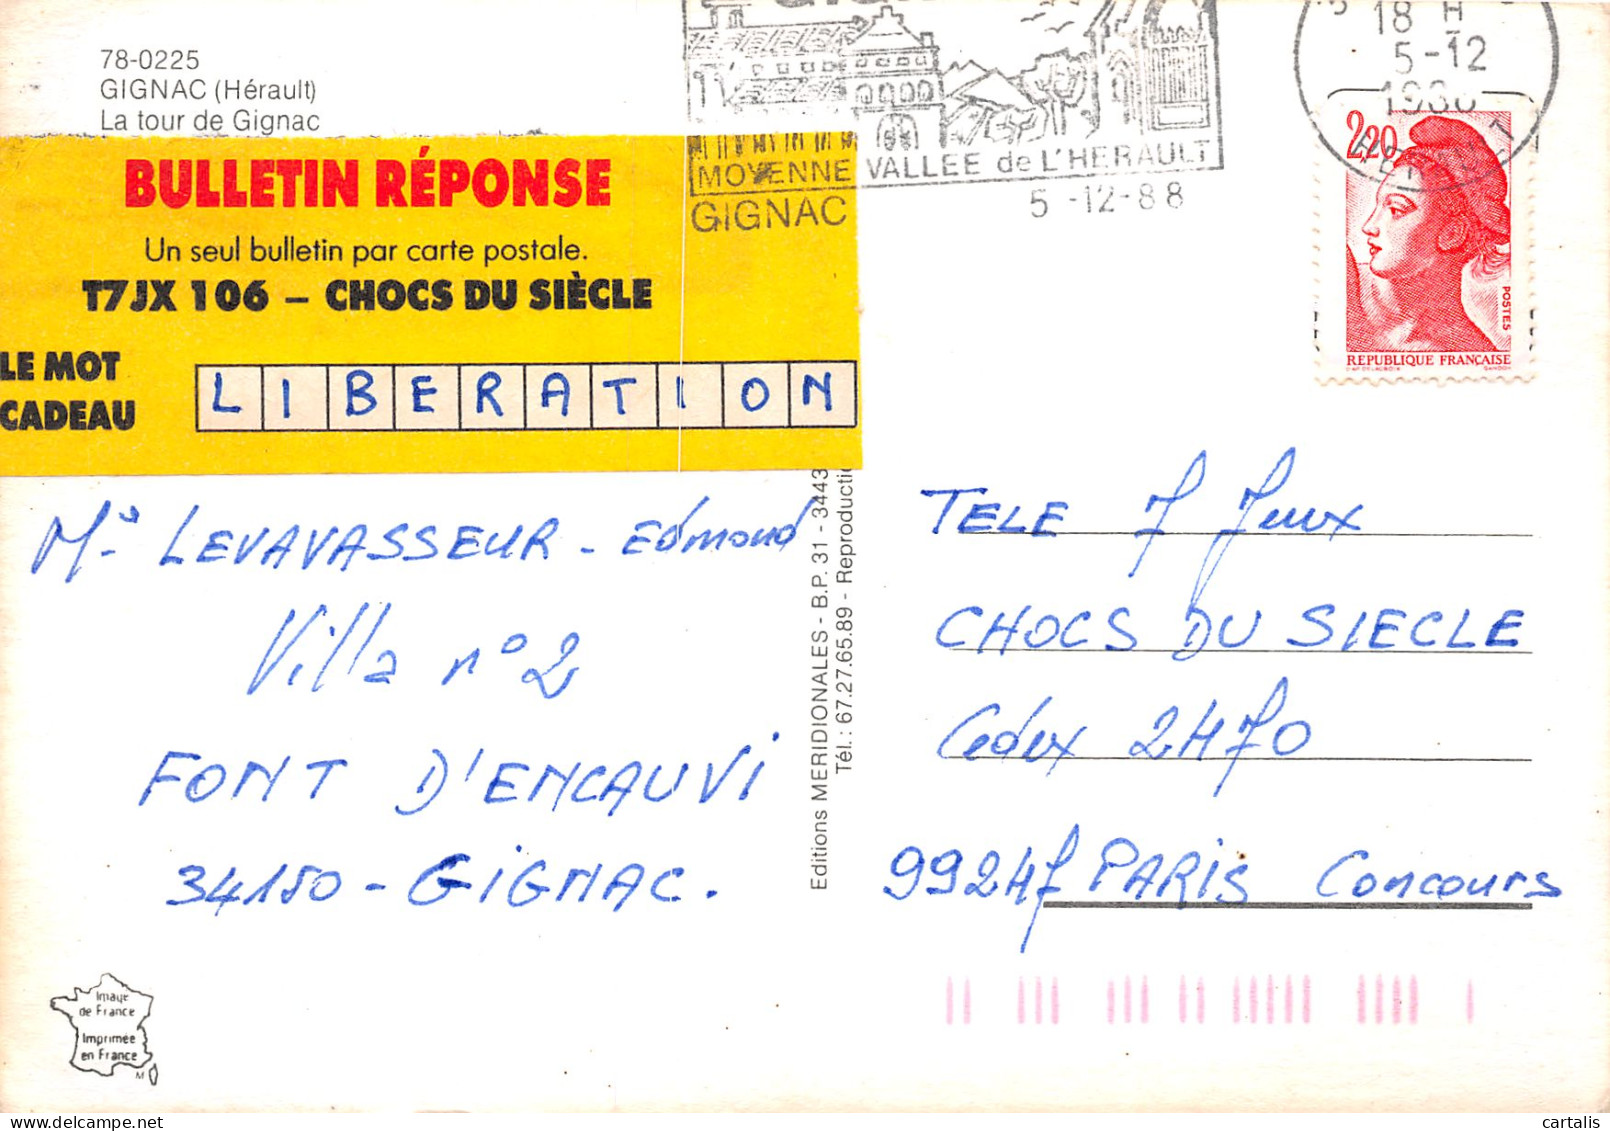 78-0225
GIGNAC (Hérault)
La tour de Gignac
BULLETIN RÉPONSE
Un seul bulletin par carte postale.
T7JX 106 – CHOCS DU SIÈCLE
LE MOT
CADEAU
LIBERATION
MOYENNE VALLEE de L'HERAULT
GIGNAC
5 -12-88
18 H
5-12
HERAULT
2,20
POSTES
REPUBLIQUE FRANÇAISE
GANDON
Mr LEVAVASSEUR - Edmond
Villa n° 2
FONT D'ENCAUVI
34150 - GIGNAC.
Editions MERIDIONALES - B.P. 31 - 3443
Tél. : 67.27.65.89 - Reproducti
TELE 7 Jeux
CHOCS DU SIECLE
Cédex 2470
99247 PARIS Concours
Image
de France
Imprimée
en France
M
cartalis